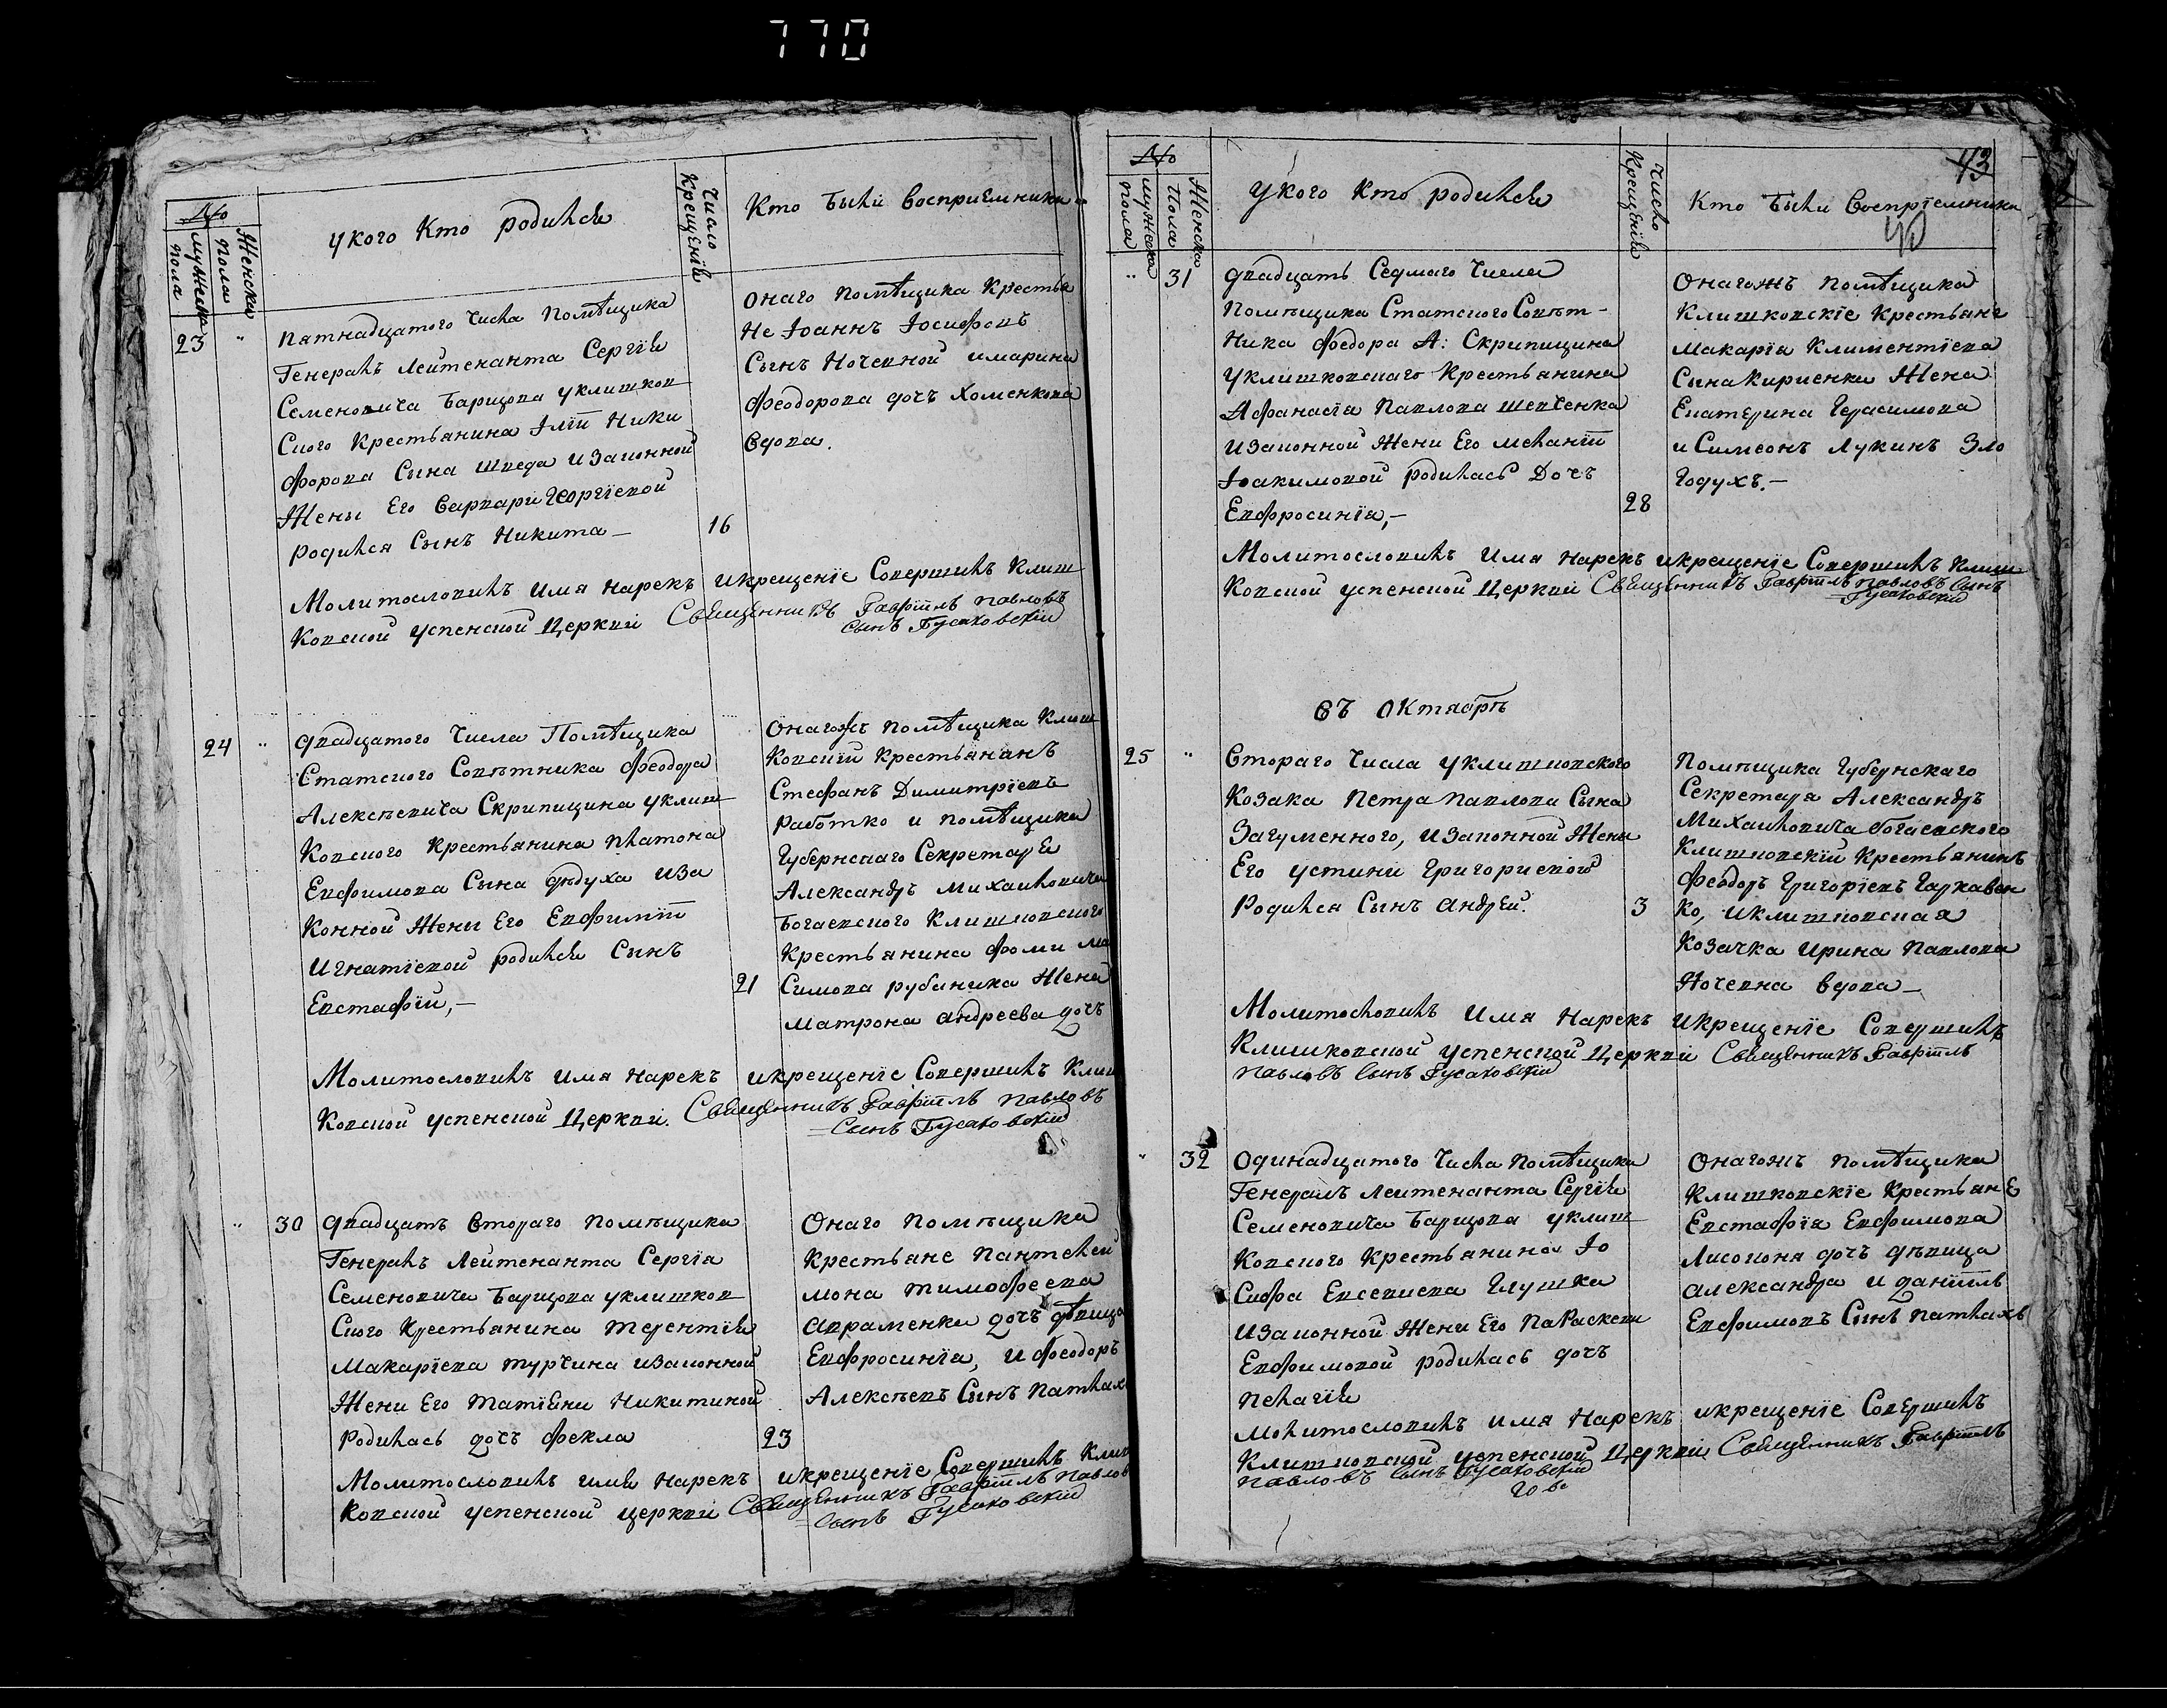 770
№
мужеска пола
Женска пола
у кого Кто родился
Число Крещенія
Кто Были воспріемники
23 "
Пятнадцатого Числа Помѣщика
Генералъ Лейтенанта Сергія
Семеновича Барщова у клишков
Ского Крестьянина Іліи Ники
форова Сына шведа и законной
Жены Его Варвари Георгіевой
родился Сынъ Никита —
16
Онаго Помѣщика Крестья
Не Іоаннъ Іосифовъ
Сынъ Ночевной и марина
Феодорова дочь Хоменкова
Вдова.
Молитвословилъ Имя Нарекъ и крещеніе Совершилъ Клиш
Ковской успенской Церкви Священникъ Гавріилъ Павловъ
Сынъ Гусаковскій
24 "
двадцатого Числа Помѣщика
Статского Совѣтника Феодора
Алексѣевича Скрипицина у клиш
Ковского Крестьянина Платона
Евфимова Сына дѣдуха и за
Конной Жены Его Евфиміи
Игнатіевой родился Сынъ
Евстафій,—
21
Онагожъ помѣщика Клиш
Ковскій Крестьянанъ
Стефанъ Димитріевъ
работко и помѣщика
Губернскаго Секретаря
Александръ Михаиловича
Богаевского Клишковского
Крестьянина Фоми Ма
Симова рубаника Жена
Матрона андреева дочь
Молитвословилъ Имя Нарекъ и крещеніе Совершилъ Клиш
Ковской успенской Церкви. Священникъ Гавріилъ Павловъ
Сынъ Гусаковскій
" 30
двадцать Втораго помѣщика
Генералъ Лейтенанта Сергія
Семеновича Барщова у клишков
Ского Крестьянина терентія
Макаріева турчина и законной
Жени Его татіяни Никитиной
Родилась дочь фекла
23
Онаго помѣщика
Крестьяне Пантелей
мона тимофеева
авраменка дочь дѣвица
Евфросинія, и феодоръ
Алексѣевъ Сынъ патлах
Молитвословилъ имя Нарекъ и крещеніе Совершилъ Клиш
Ковской успенской церкви Священникъ Гавріилъ Павловъ
Сынъ Гусаковскій
43
№
мужеска пола
Женска Пола
у кого Кто родился
Число Крещенія
Кто Были Воспріемники
" 31
двадцать Седмаго Числа
Помѣщика Статского Совѣт-
Ника Федора А: Скрипицина
у клишковскаго Крестьянина
Афанасія Павлова шевченка
и законной Жени Его меланіи
Іоакимовой родилась Дочь
Евфросинія,—
28
Онагожъ помѣщика
Клишковскіе Крестьяне
Макарія Климентіева
Сына Кириенка Жена
Екатерина Герасимова
и Симеонъ Лукинъ Зло
Годухъ.—
Молитвословилъ Имя Нарекъ и крещеніе Совершилъ Клиш
Ковской успенской Церкви Священникъ Гавріилъ Павловъ Сынъ
Гусаковскій
Въ Октябрѣ
25 "
Втораго Числа у клишковского
Козака Петра Павлова Сына
Загуменного, и законной Жены
Его Устини Григориевой
Родился Сынъ андрей.
3
Помѣщика Губернскаго
Секретаря Александръ
Михаиловича богаевского
Клишковскій Крестьянинъ
Феодоръ Григоріевъ Гаркавен
Ко, и клишковская
Козачка Ирина Павлова
Ночевна вдова —
Молитвословилъ Имя Нарекъ и крещеніе Совершилъ
Клишковской успенской Церкви Священникъ Гавріилъ
Павловъ Сынъ Гусаковскій
" 32
Одинадцатого Числа помѣщика
Генералъ Лейтенанта Сергія
Семеновича Барщова у клиш
Ковского Крестьянина Іо
Сифа Евсевиева Глушка
и законной Жени Его Параскеви
Евфимовой родилась дочь
Пелагія
Онагожъ помѣщика
Клишковскіе Крестьяне
Евстафія Евфимова
Лисогоня дочь дѣвица
александра и даніилъ
Евфимовъ Сынъ патлахъ
Молитвословилъ имя Нарекъ и крещеніе Совершилъ
Клишковской успенской Церкви Священникъ Гавріилъ
Павловъ Сынъ Гусаковскій